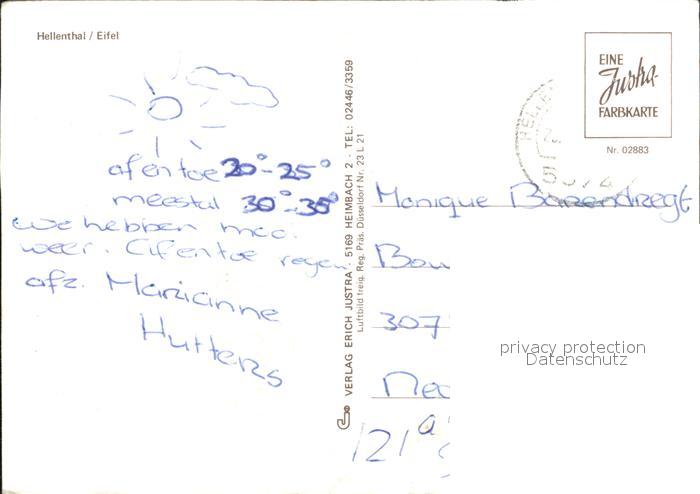 Hellenthal / Eifel
af en toe 20° - 25°
meestal 30° - 35°
we hebben moo.
weer. Af en toe regen.
afz. Marianne
Hutters
VERLAG ERICH JUSTRA · 5169 HEIMBACH 2 · TEL: 02446/3359
Luftbild freig. Reg. Präs. Düsseldorf Nr. 23 L 21
EINE
Justra-
FARBKARTE
Nr. 02883
Monique Barendregt
Bou
307
Ned
121 a
privacy protection
Datenschutz